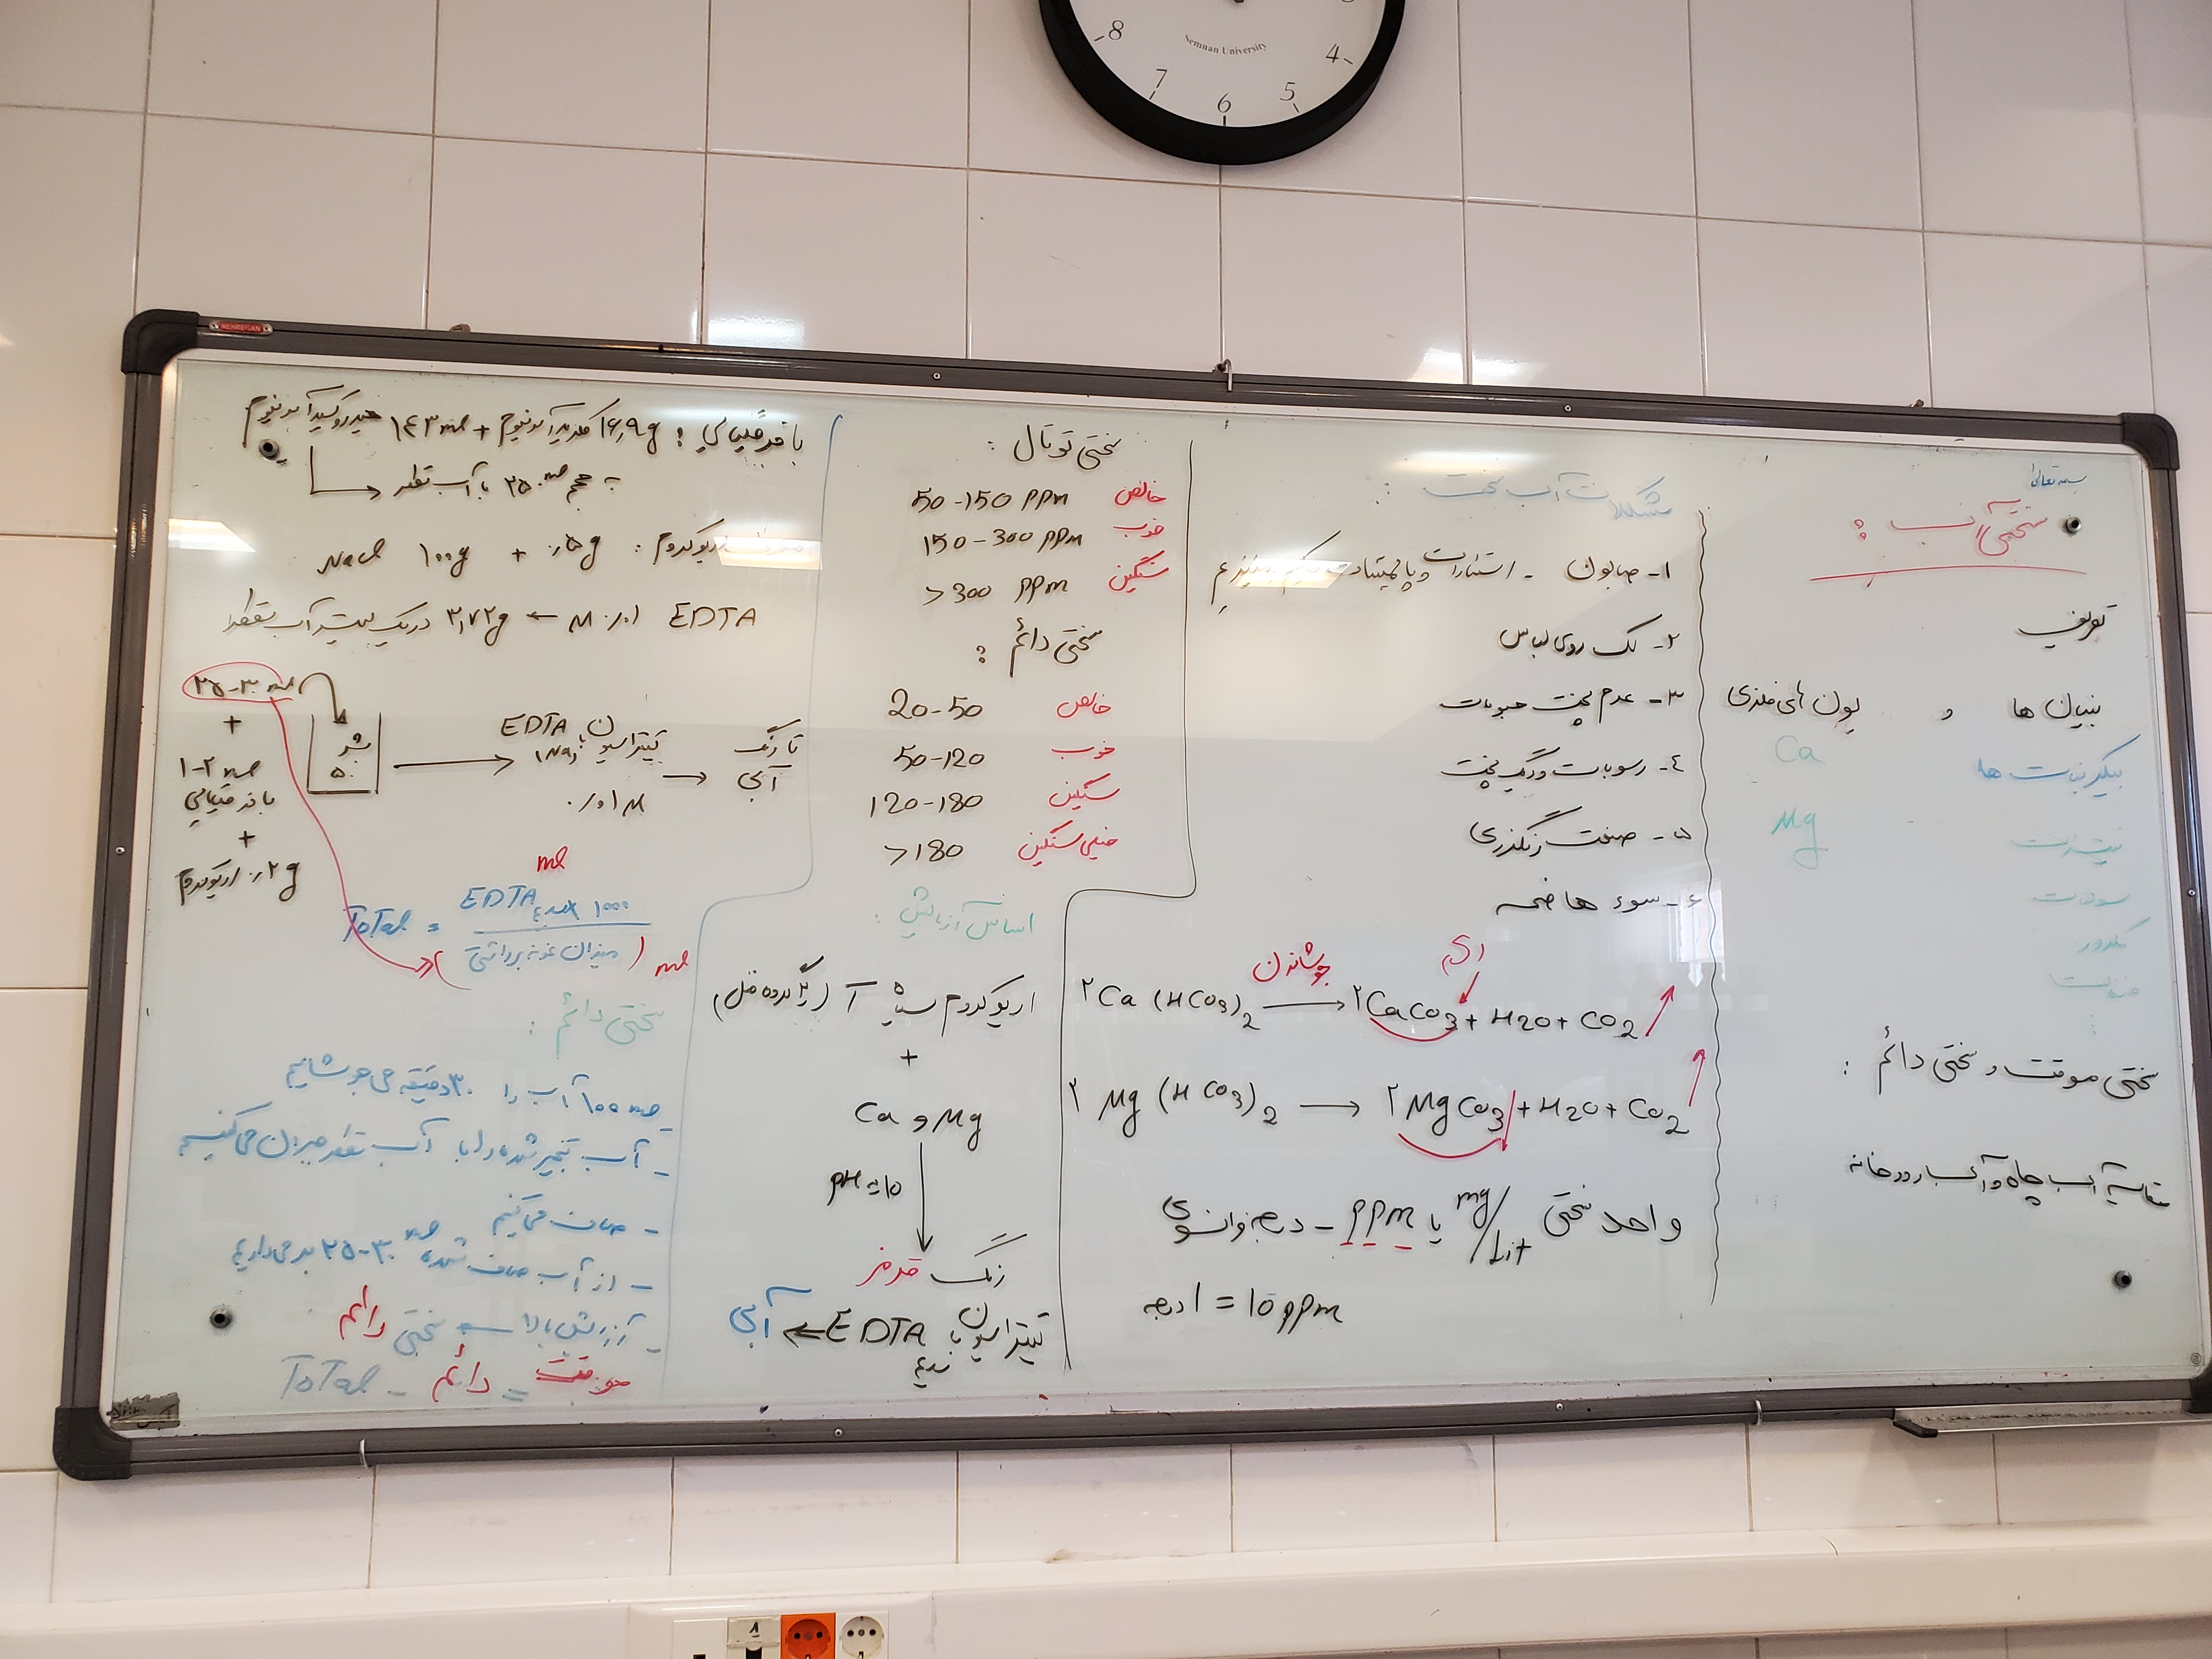 8
7
6
5
4
Semnan University
MEHREGAN
بسمه تعالی
سختی آب :
تعریف
بنیان ها و یون های فلزی
بیکربنات ها Ca
نیترات Mg
سولفات
کلرور
سختی موقت و سختی دائم :
مقایسه آب چاه و آب رودخانه
مشکلات آب سخت :
۱- صابون - استئارات و پالمیتات
۲- لک روی لباس
۳- عدم پخت حبوبات
٤- رسوبات و دیگ پخت
۵- صنعت رنگرزی
۶- سوء هاضمه
۲Ca (HCO3)2 جوشاندن → ۲CaCO3 + H2O + CO2
۲ Mg (HCO3)2 → ۲MgCO3 + H2O + CO2
واحد سختی mg/Lit یا PPM - درجه فرانسوی
۱ درجه = 10 ppm
سختی توتال :
خالص 50-150 ppm
خوب 150-300 ppm
سنگین >300 ppm
سختی دائم :
خالص 20-50
خوب 50-120
سنگین 120-180
خیلی سنگین >180
اساس آزمایش :
اریوکروم سیاه
+
Ca و Mg
pH=10
رنگ قرمز
تیتراسیون با EDTA ← آبی
سدیم
بافر قلیایی : ۱۶٫۹g کلرید آمونیوم + ۱٤۳ ml هیدروکسید آمونیوم
به حجم ۲۵۰ ml با آب مقطر
معرف اریوکروم : ۰٫۵g + ۱۰۰g NaCl
EDTA ۰٫۰۱ M ← ۳٫۷۲g در یک لیتر آب مقطر
۲۵-۳۰ ml
+
۱-۲ ml
بافر قلیایی
+
۰٫۲g اریوکروم
بشر
۵۰
تیتراسیون با EDTA
۰٫۰۱ M
تا رنگ
آبی
ml
ToTal = EDTA مصرفی × ۱۰۰۰
(میزان نمونه برداشتی) ml
سختی دائم :
- ۱۰۰ ml آب را ۳۰ دقیقه می جوشانیم
- آب تبخیر شده را با آب مقطر جبران می کنیم
- صاف می کنیم
- از آب صاف شده ۲۵-۳۰ ml بر می داریم
- آزمایش بالا ← سختی دائم
موقت = دائم - ToTal